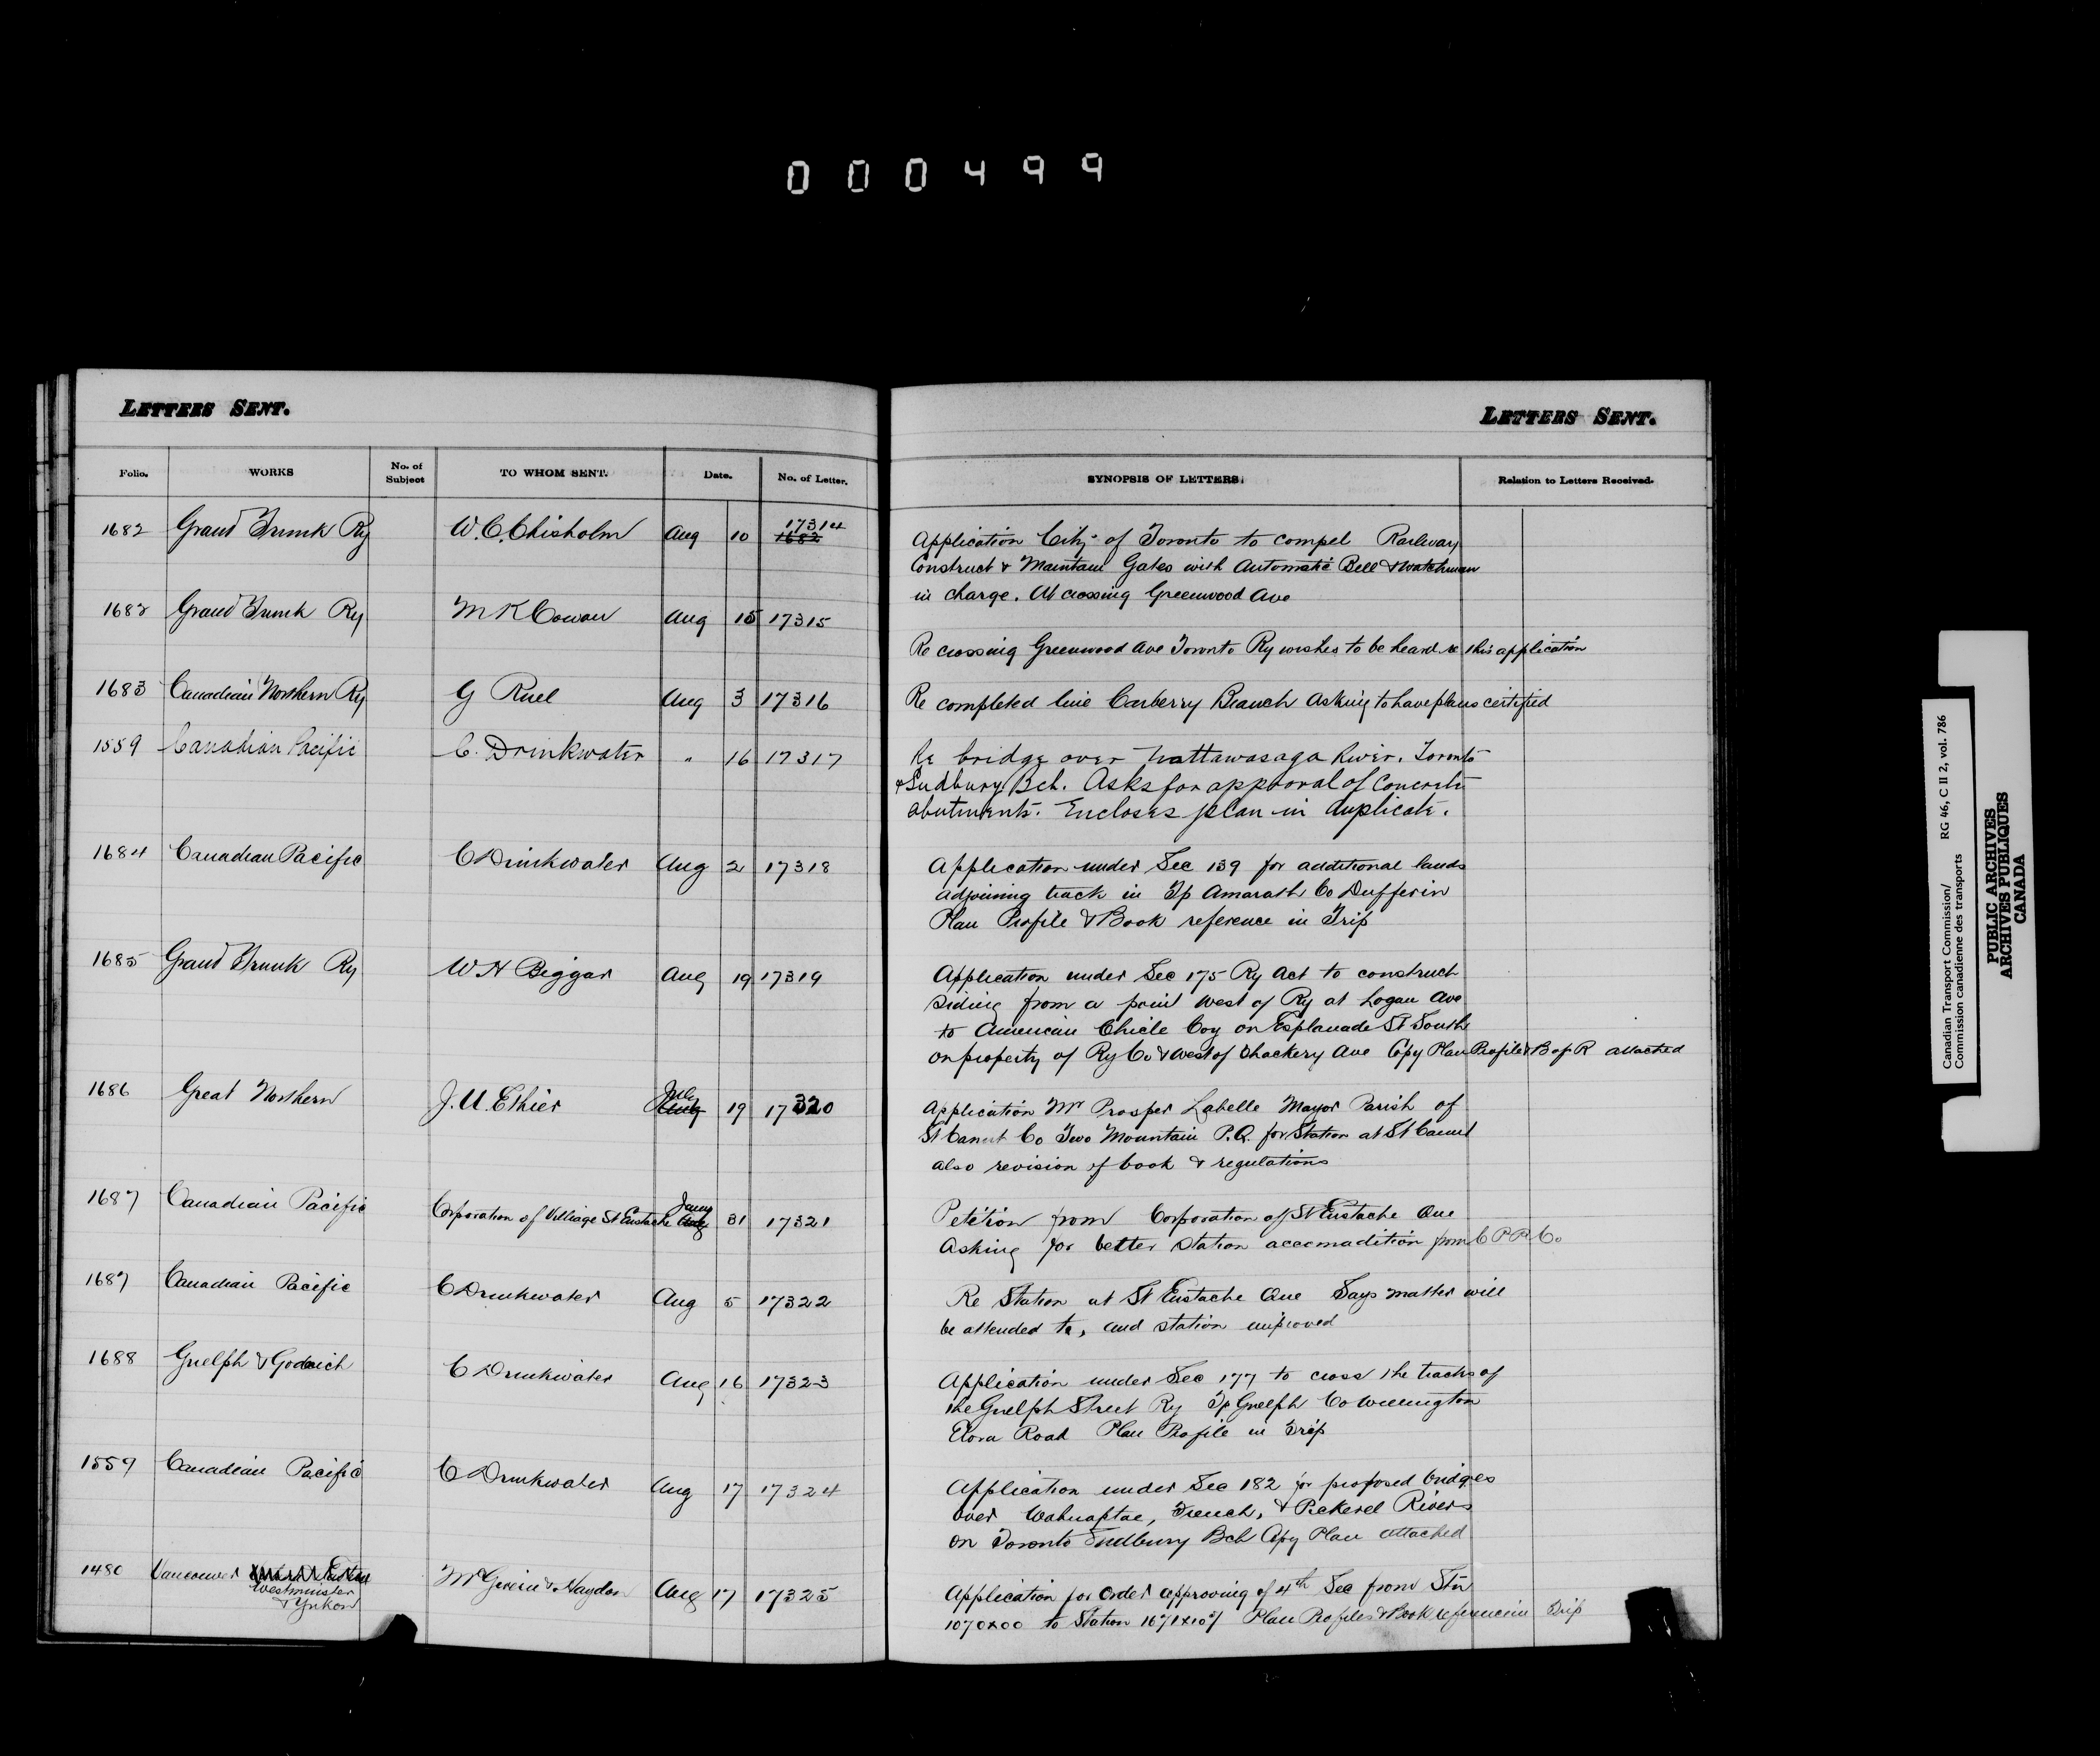 000499
LETTERS SENT.
Folio. WORKS No. of Subject TO WHOM SENT. Date. No. of Letter.
1682 Grand Trunk Ry W.C. Chisholm Aug 10 17314 1682
1682 Grand Trunk Ry M K Cowan Aug 15 17315
1683 Canadian Northern Ry G Ruel Aug 3 17316
1559 Canadian Pacific C. Drinkwater " 16 17317
1684 Canadian Pacific C Drinkwater Aug 2 17318
1685 Grand Trunk Ry W H Biggar Aug 19 17319
1686 Great Northern J.U. Ethier July 19 17320
1687 Canadian Pacific Corporation of Villiage St Eustache Jany 31 17321
1687 Canadian Pacific C Drinkwater Aug 5 17322
1688 Guelph & Goderich C Drinkwater Aug 16 17323
1559 Canadian Pacific C Drinkwater Aug 17 17324
1480 Vancouver Westminster & Yukon McGiverin & Haydon Aug 17 17325
LETTERS SENT.
SYNOPSIS OF LETTERS. Relation to Letters Received.
Application City of Toronto to compel Railway
Construct & Maintain Gates with Automatic Bell & Watchman
in charge. At crossing Greenwood Ave
Re crossing Greenwood Ave Toronto Ry wishes to be heard re this application
Re completed line Carberry Branch asking to have plans certified
Re bridge over Nattawasaga River. Toronto
& Sudbury Bch. Asks for approval of Concrete
abutments. Encloses plan in duplicate.
Application under Sec 139 for additional lands
adjoining track in Tp Amarath Co Dufferin
Plan Profile & Book reference in Trip
Application under Sec 175 Ry Act to construct
siding from a point west of Ry at Logan Ave
to American Chicle Coy on Esplanade St South
on property of Ry Co & west of Ave Copy Plan Profile & B of R attached
Application Mr Prosper Labelle Mayor Parish of
St Canut Co Two Mountain P.Q. for Station at St Canut
also revision of book & regulations
Petition from Corporation of St Eustache Que
Asking for better station accomadition from C P R Co.
Re Station at St Eustache Que Says matter will
be attended to, and station improved
Application under Sec 177 to cross the tracks of
the Guelph Street Ry Tp Guelph Co Wellington
Elora Road Plan Profile in Trip
Application under Sec 182 for proposed bridges
over Wahnaptae, French, & Pickerel Rivers
on Toronto Sudbury Bch Copy Plan attached
Application for order approving of 4th Sec from Stn
1070x00 to Station Plan Profiles & Book reference in Trip
Canadian Transport Commission/ RG 46, C II 2, vol. 786
Commission canadienne des transports
PUBLIC ARCHIVES
ARCHIVES PUBLIQUES
CANADA